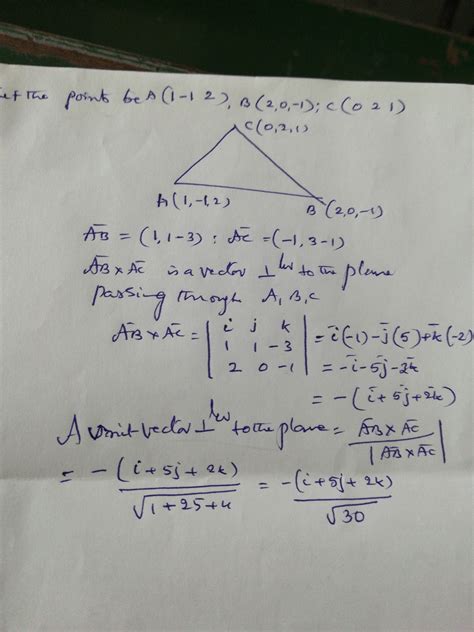 Let the points be A(1-1 2), B(2,0,-1); C(0 2 1)
C(0,2,1)
A(1,-1,2)
B(2,0,-1)
AB̄ = (1,1-3) : AC̄ = (-1,3-1)
AB̄ × AC̄ is a vector ⊥lar to the plane
passing through A,B,C
AB̄ × AC̄ = | i j k | = ī(-1) - j̄(5) + k̄(-2)
| 1 1 -3 | = -ī-5j̄-2k̄
| 2 0 -1 |
= -(ī+5j̄+2k̄)
A unit vector ⊥lar to the plane = AB̄ × AC̄ / |AB̄ × AC̄|
= -(i+5j+2k) / √1+25+4 = -(i+5j+2k) / √30